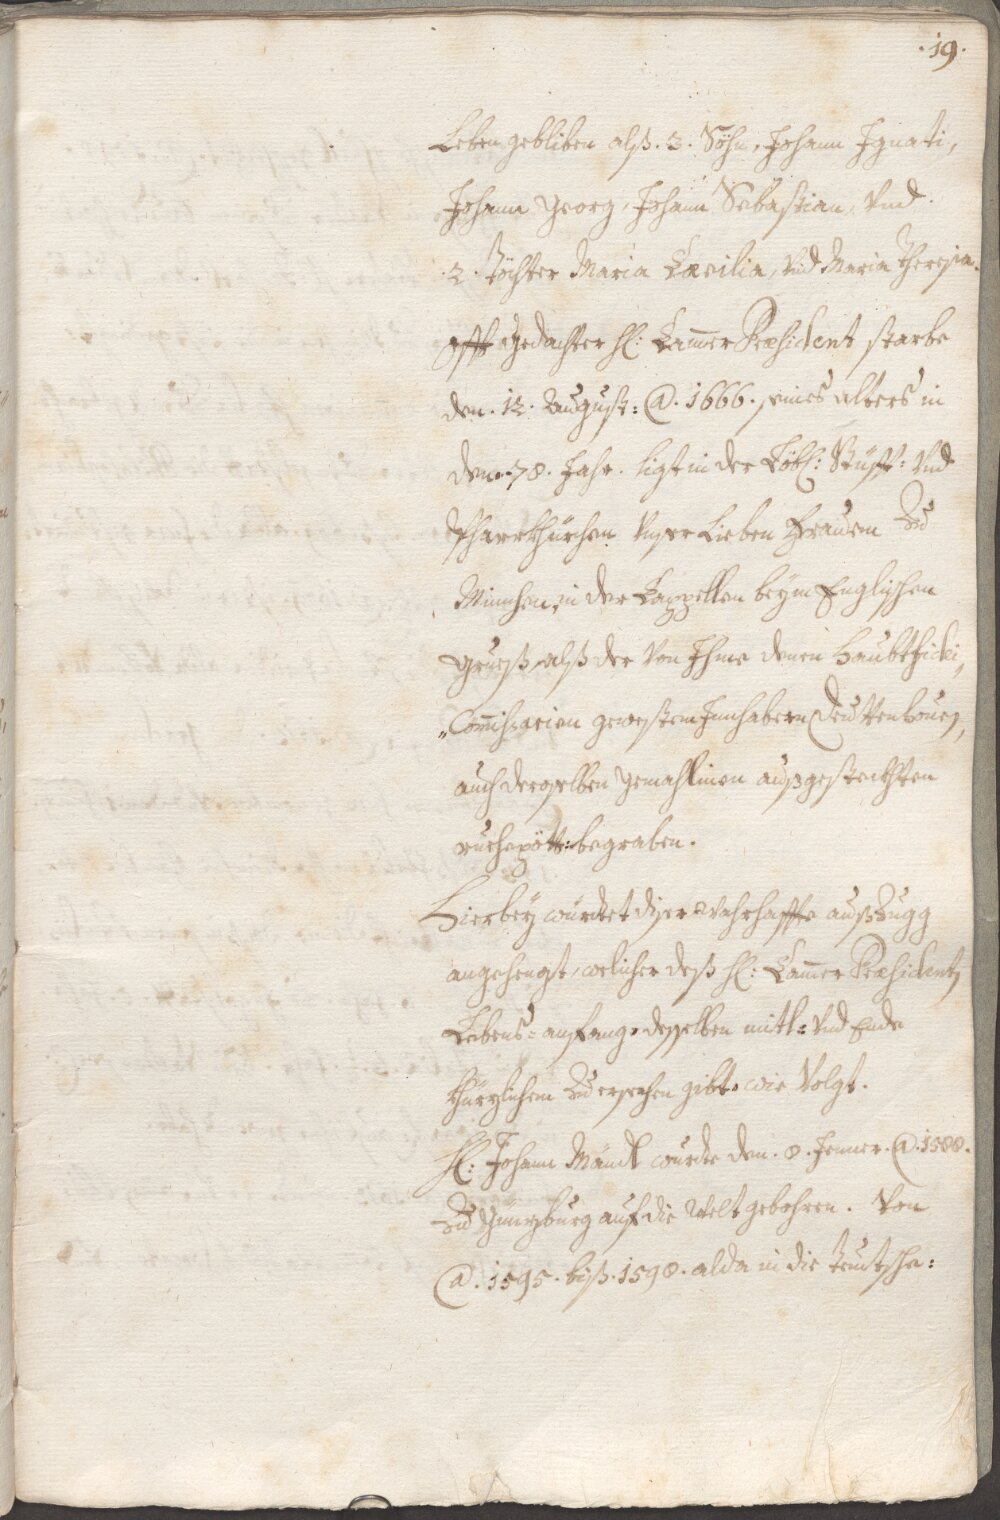 .19.
Leben gebliben alß .3. Söhn, Johann Ignati,
Johann Georg, Johann Sebastian, vnd
.2. Töchter Maria Cæcilia, vnd Maria Theresia.
offt gedachter H: Cam̅er Præsident starbe
den .12. August: A̅o. 1666. seines alters in
dem .78. Jahr. ligt in der Löbl: Stüfft: vnd
Pfarrkhürchen vnser Lieben Frauen Zu
Münchn, in der Cappellen beym Englischen
grueß, alß der von Ihme denen haubtfidei,,
,,Com̅issarien gewesten Innhabern Deittenhouen,
auch derselben Gemahlinen außgesteckhten
ruehe begraben.
Hierbey würdtet diser wahrhaffte außzugg
angehengt, welicher deß H: Cam̅er Præsidents
Lebens= anfang, desselben mitl= vnd Ende
khürzlichem Zuersechen gibt, wie volgt.
H: Johann Mändl wurdte den .8. Jenner. A̅o. 1588.
Zu Günzburg auf die welt gebohren. Von
A̅o. 1595. biß .1598. alda in die Teutsche: